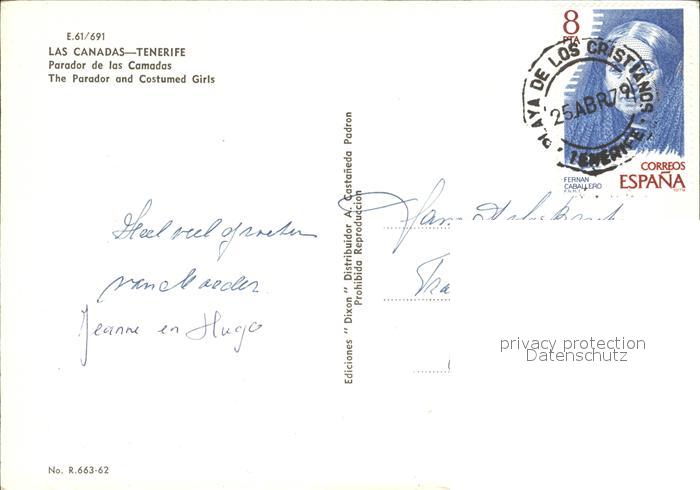 E.61/691
LAS CANADAS—TENERIFE
Parador de las Camadas
The Parador and Costumed Girls
8
PTA
PLAYA DE LOS CRISTIANOS
25 ABR 79
TENERIFE
CORREOS
ESPAÑA
1979
FERNAN
CABALLERO
Heel veel groeten
van Moeder
Jeanne en Hugo
Ediciones "Dixon" Distribuidor A. Castañeda Padron
Prohibida Reproducción
privacy protection
Datenschutz
No. R.663-62